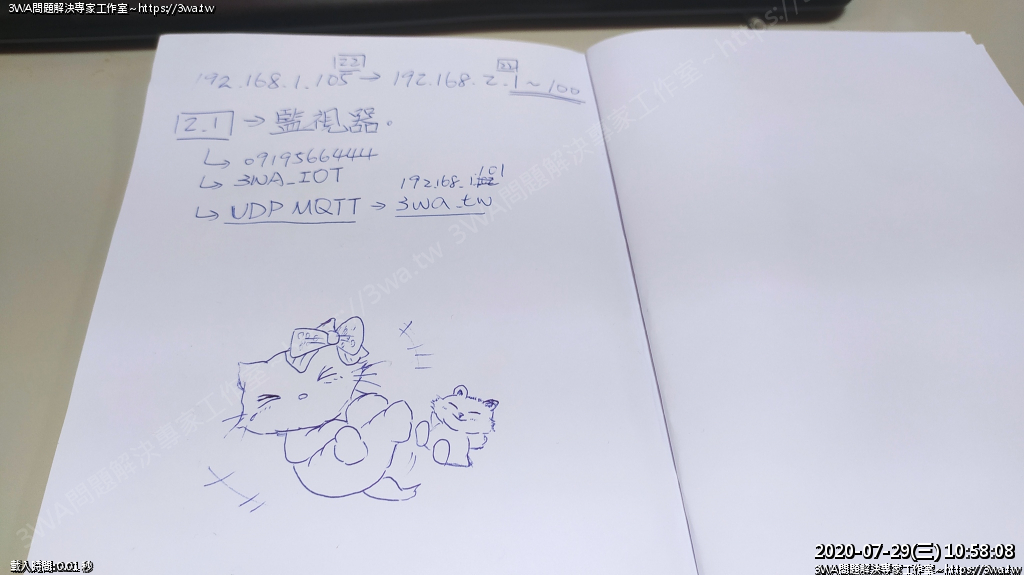 3WA問題解決專家工作室~https://3wa.tw
22 22
192.168.1.105 → 192.168.2.1~100
12.1 → 監視器。
↳ 0919566444
↳ 3WA_IOT
192.168.1.101
↳ UDP MQTT → 3wa.tw
3WA問題解決專家工作室~https://3wa.tw 3WA問題解決專家工作室~https://
載入時間:0.01 秒
2020-07-29(三) 10:58:08
3WA問題解決專家工作室~https://3wa.tw